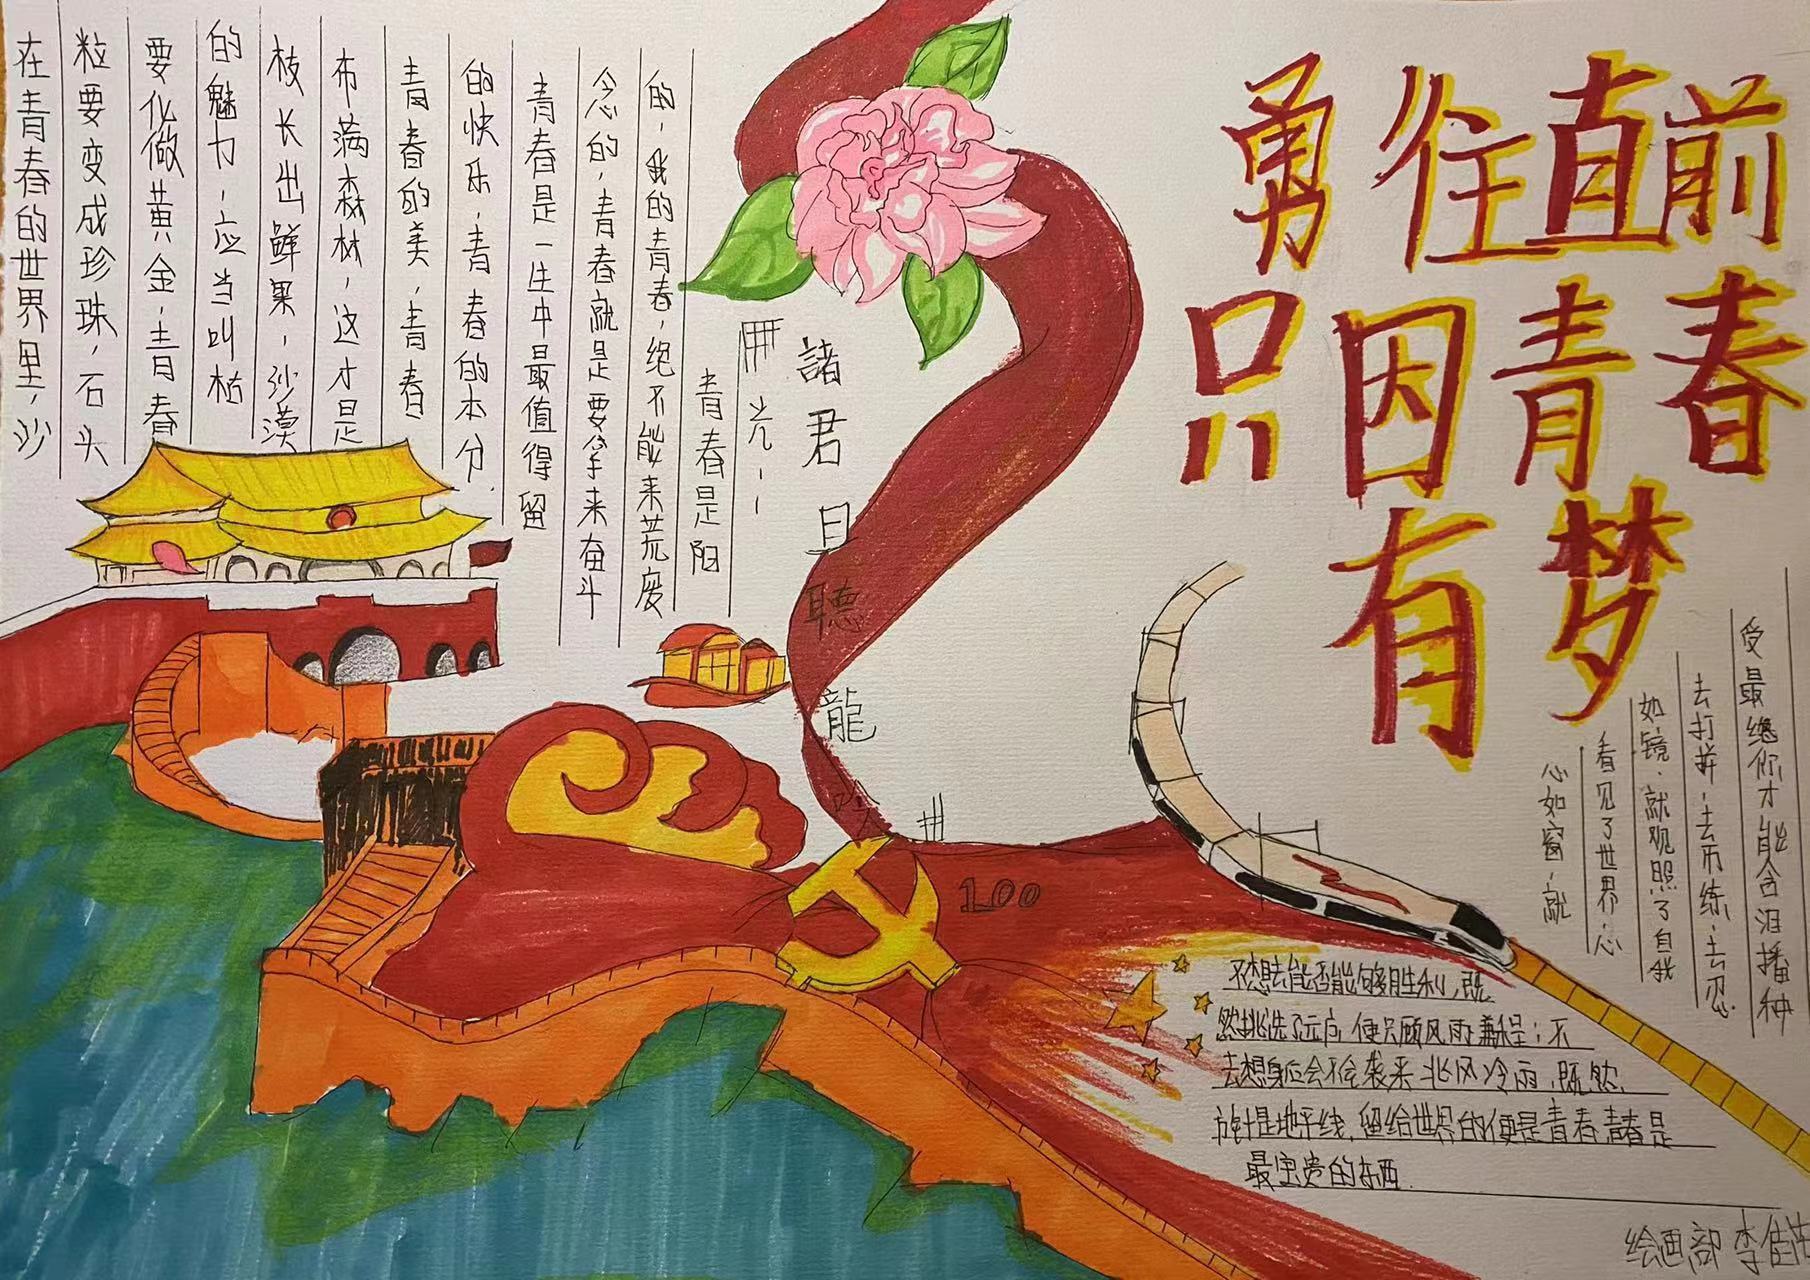 勇往直前
只因青春
有梦
在青春的世界里,沙
粒要变成珍珠,石头
要化做黄金,青春
的魅力,应当叫枯
枝长出鲜果,沙漠
布满森林,这才是
青春的美,青春
的快乐,青春的本分.
青春是一生中最值得留
念的,青春就是要拿来奋斗
的,我的青春,绝不能来荒废
青春是阳
光
諸君且聽龍吟
100
心如窗,就
看见了世界,心
如镜,就观照了自我
去打拼,去历练,去忍
受最 你才能含泪播种
不想去能否能够胜利,既
然挑选了远方,便只顾风雨兼程;不
去想身后会不会袭来北风冷雨,既然
方针是地平线,留给世界的便是青春,青春是
最宝贵的东西.
绘画部 李佳